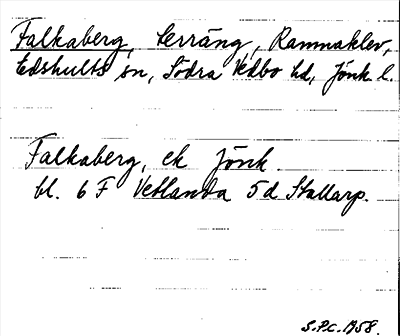 Falkaberg, terräng, Ramnaklev,
Edshults sn, Södra Vedbo hd, Jönk l.
Falkaberg, ek Jönk
bl. 6 F Vetlanda 5 d Stallarp.
S.P.C. 1958.